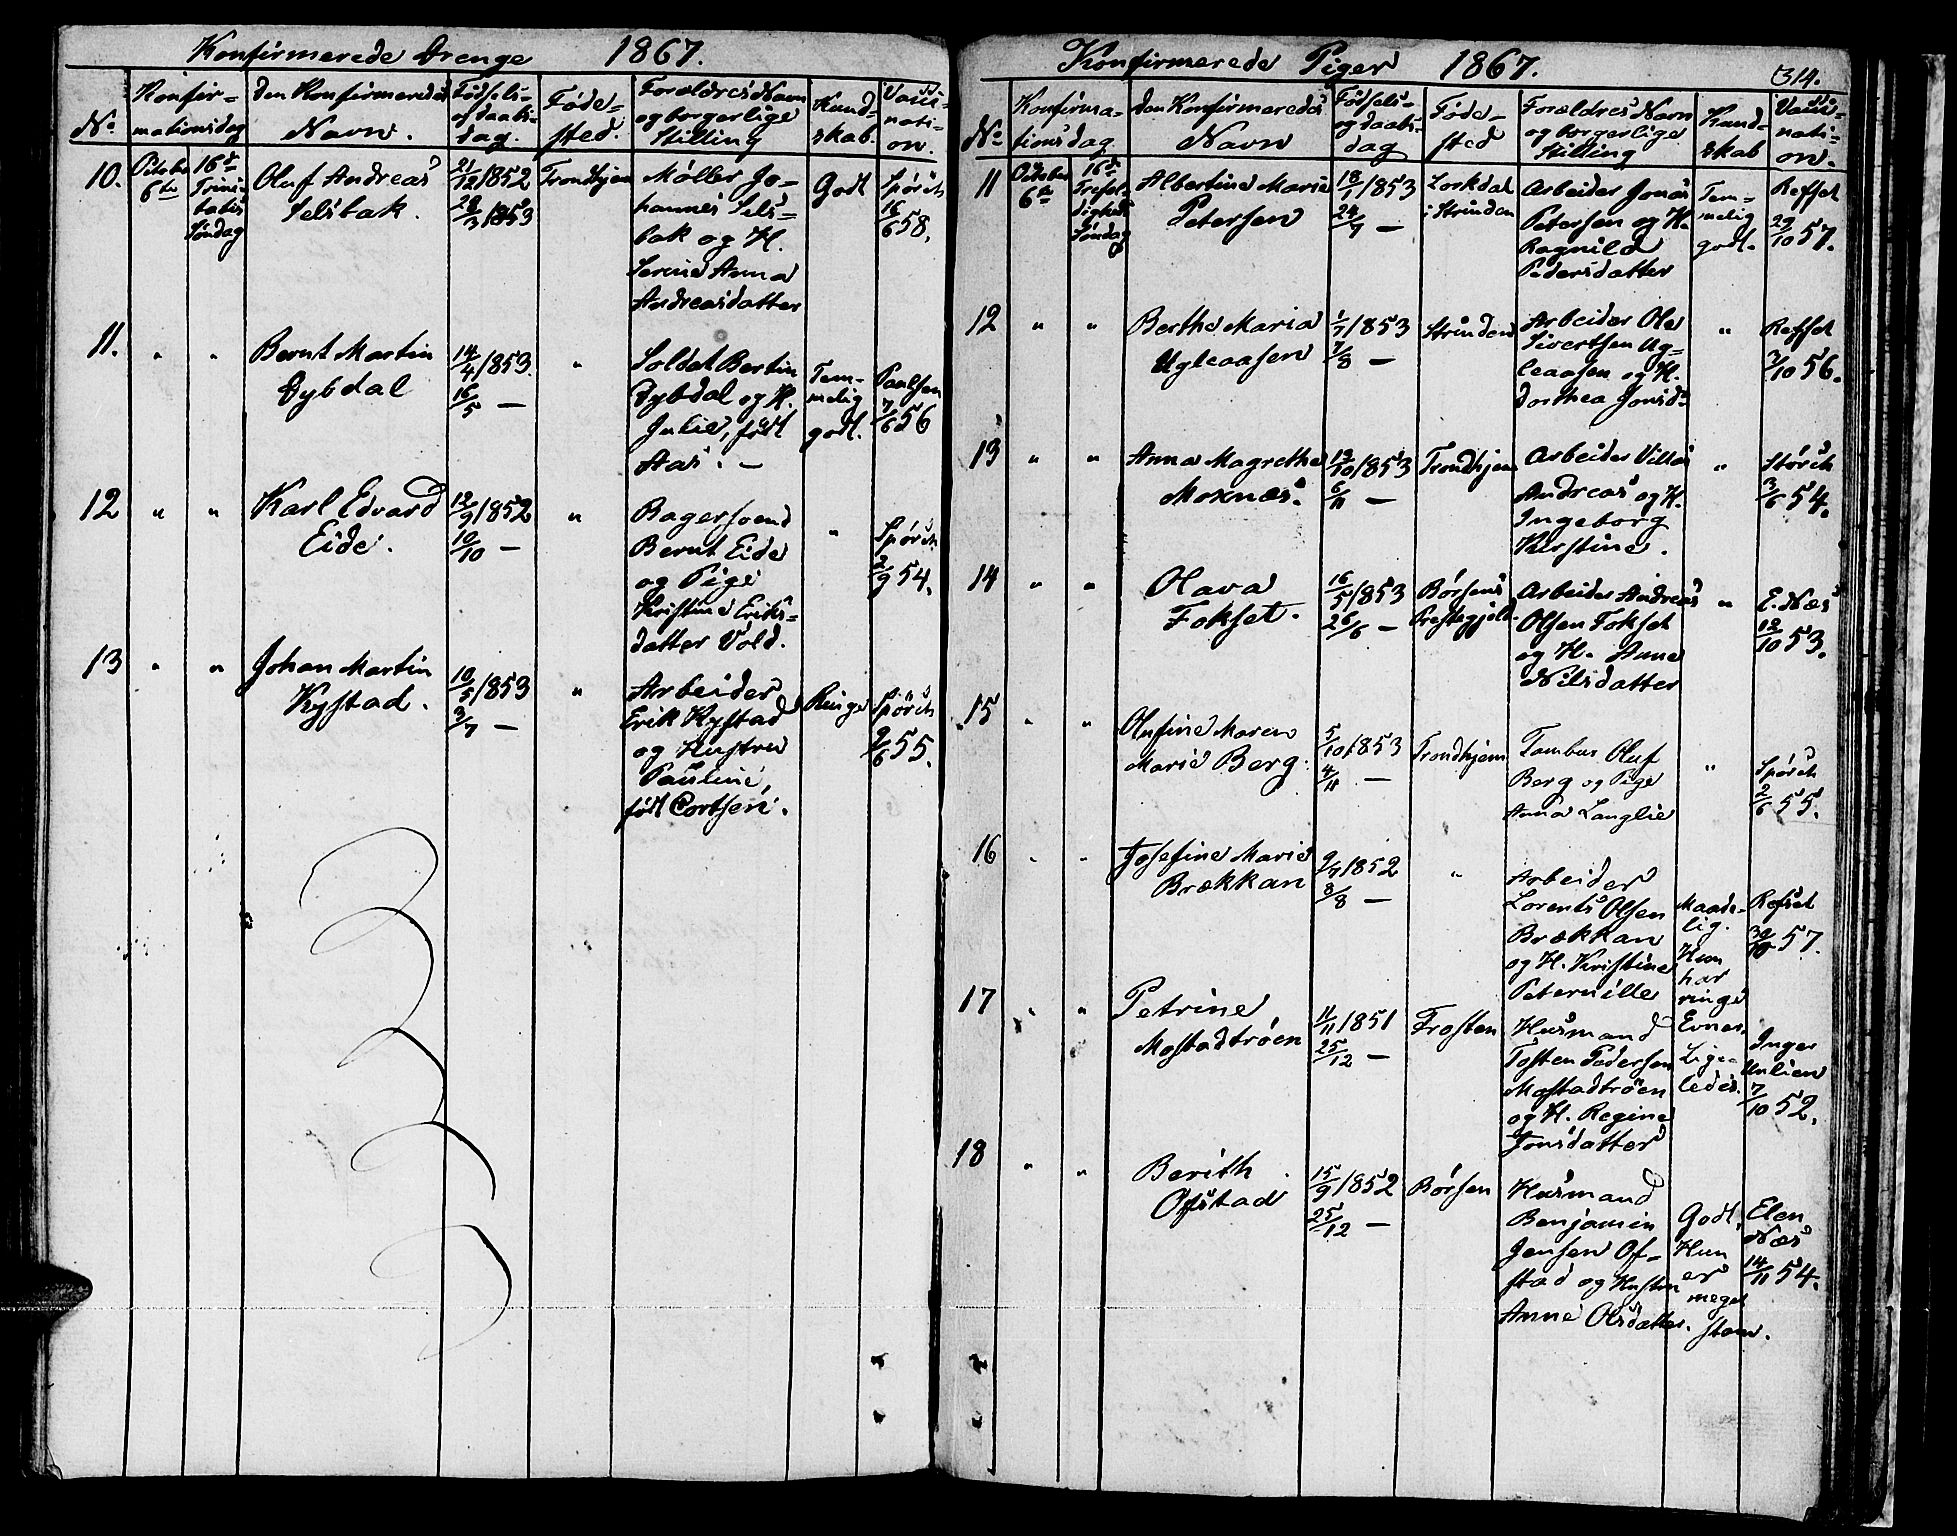 Konfirmerede Drenge 1867.
No
Konfir-
mationsdag
den Konfirmeredes
Navn.
Fødsels-
og daabs-
dag.
Føde-
sted.
Forældres Navn
og borgerlige
Stilling
Kund-
skab.
Vacci-
nati-
on.
10.
October
6te
16de
Trini-
tatis
Søndag
Oluf Andreas
Selsbak.
21/12 1852
28/3 1853
Trondhjem
Møller Jo-
hannes Sels-
bak og H.
Serine Anna
Andreasdatter
Godt
Spørck
16/6 58.
11. " "
Bernt Martin
Dybdal
14/4 1853.
16/5 —
"
Soldat Bertin
Dybdal og H.
Julie, født
Aas. —
Tem-
melig
godt.
Paulsen
7/6 56
12 " "
Karl Edvard
Eide.
12/9 1852
10/10 —
"
Bagersvend
Bernt Eide
og Pige
Kristine Eriks-
datter Vold.
"
Spørck
2/9 54.
13 " "
Johan Martin
Kystad.
10/5 1853
3/7 —
"
Arbeider
Erik Kystad
og Hustru
Pauline,
født Cortsen.
Ringe
Spørck
2/6 55.
Konfirmerede Piger 1867.
314.
No
Konfirma-
tionsdag
den Konfirmeredes
Navn
Fødsels-
og daabs-
dag
Føde-
sted
Forældres Navn
og borgerlige
Stilling
Kund-
skab
Vacci-
nati-
on.
11
October
6te
16de
Søndag
Albertine Marie
Petersen
18/1 1853
24/7 —
i Strinden
Arbeider Jonas
Petersen og H.
Ragnild
Pedersdatter
Tem-
melig
godt.
Refset
29/10 57.
12 " "
Berthe Maria
Ugleaasen
1/7 1853
7/8 —
Strinden
Arbeider Ole
Sivertsen Ug-
leaasen og H.
Dorthea Jonsd.
"
Refset
3/10 56.
13 " "
Anna Magrethe
Moxnæs.
12/10 1853
6/11 —
Trondhjem
Arbeider
Andreas og H.
Ingeborg
Kirstine.
"
Størck
3/6 54.
14 " "
Olava
Fokset.
16/5 1853
26/6 —
Børsens
Prestegjeld.
Arbeider Andreas
Olsen Fokset
og H. Anne
Nilsdatter
"
E. Næs
12/10 53.
15 " "
Olufine Maren
Marie Berg.
5/10 1853
4/11 —
Trondhjem
Tambur Oluf
Berg og Pige
Anna Langlie
"
Spørck
2/6 55.
16 " "
Josefine Marie
Brækkan
9/7 1852
8/8 —
"
Arbeider
Lorents Olsen
Brækkan
og H. Kristine
Peternille
Maade-
lig.
Hun
har
ringe
Evner.
Refset
30/10 57.
17 " "
Petrine
Mostadtrøen
11/11 1851
25/12 —
Frosten
Husmand
Tosten Pedersen
Mostadtrøen
og H. Regine
Jonsdatter
Lige-
ledes.
Inger
7/10 52.
18 " "
Berith
Ofstad
15/9 1852
25/12 —
Børsen
Husmand
Benjamin
Jensen Of-
stad og Hustru
Anne Olsdatter.
Godt.
Hun
er
meget
Elen
Næs
14/11 54.